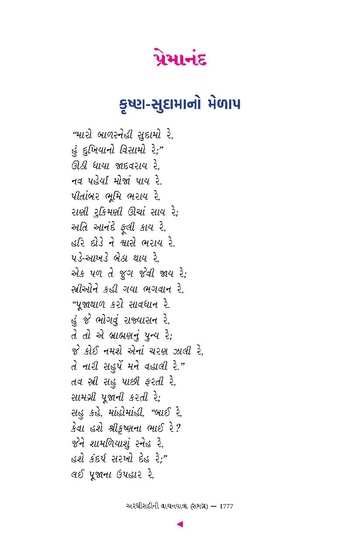 પ્રેમાનંદ
કૃષ્ણ-સુદામાનો મેળાપ
“મારો બાળસ્નેહી સુદામો રે,
હું દુખિયાનો વિસામો રે;”
ઊઠી ધાયા જાદવરાય રે,
નવ પહેર્યાં મોજાં પાય રે.
પીતાંબર ભૂમિ ભરાય રે,
રાણી રુકિમણી ઊંચાં સાય રે;
અતિ આનંદે ફૂલી કાય રે,
હરિ દોડે ને શ્વાસે ભરાય રે.
પડે-આખડે બેઠા થાય રે.
એક પળ તે જુગ જેવી જાય રે;
સ્ત્રીઓને કહી ગયા ભગવાન રે.
“પૂજાથાળ કરો સાવધાન રે.
હું જે ભોગવું રાજ્યાસન રે,
તે તો એ બ્રાહ્મણનું પુન્ય રે;
જે કોઈ નમશે એનાં ચરણ ઝાલી રે,
તે નારી સહુપેં મને વહાલી રે.”
તવ સ્ત્રી સહુ પાછી ફરતી રે,
સામગ્રી પૂજાની કરતી રે;
સહુ કહે, માંહોમાંહી, “બાઈ રે,
કેવા હશે શ્રીકૃષ્ણના ભાઈ રે?
જેને શામળિયાશું સ્નેહ રે,
હશે કંદર્પ સરખો દેહ રે;”
લઈ પૂજાના ઉપહાર રે,
અરધી સદીની વાચનયાત્રા (સમગ્ર) — 1777